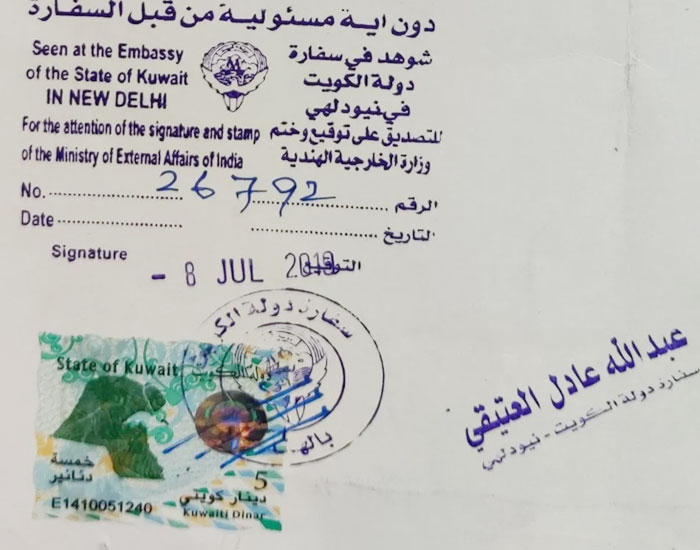 دون اية مسئولية من قبل السفارة
Seen at the Embassy
of the State of Kuwait
IN NEW DELHI
شوهد في سفارة
دولة الكويت
في نيودلهي
For the attention of the signature and stamp
of the Ministry of External Affairs of India
للتصديق على توقيع وختم
وزارة الخارجية الهندية
No. 26792 الرقم
Date التاريخ
Signature التوقيع
- 8 JUL
سفارة دولة الك
State of Kuwait
دولة الكويت
خمسة
دنانير
5
دينار كويتي
Kuwaiti Dinar
E1410051240
عبد الله عادل العتيقي
سفارة دولة الكويت - نيودلهي